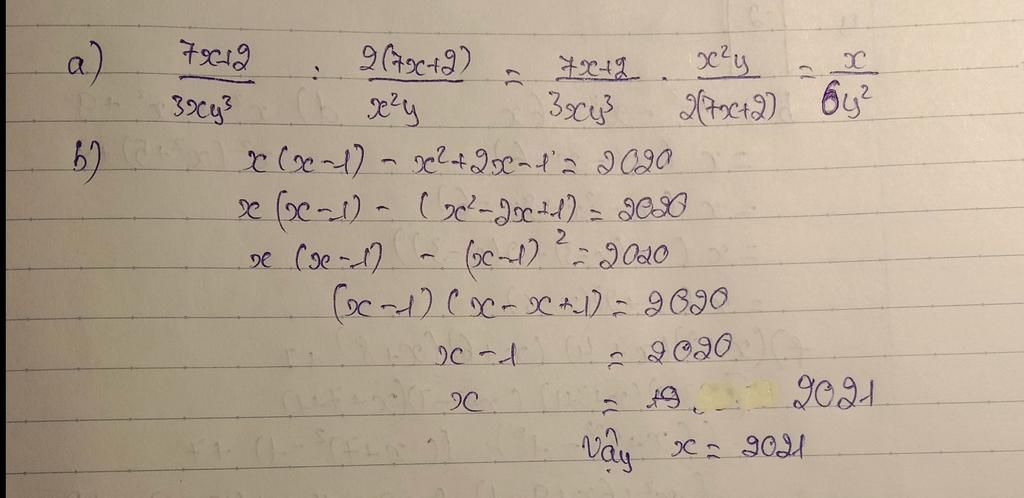 a) \frac{7x+2}{3xy^3} : \frac{2(7x+2)}{x^2y} = \frac{7x+2}{3xy^3} . \frac{x^2y}{2(7x+2)} = \frac{x}{6y^2}
b) x(x-1) - x^2+2x-1 = 2020
x(x-1) - (x^2-2x+1) = 2020
x (x-1) - (x-1)^2 = 2020
(x-1)(x-x+1) = 2020
x-1 = 2020
x = 2021
Vậy x = 2021